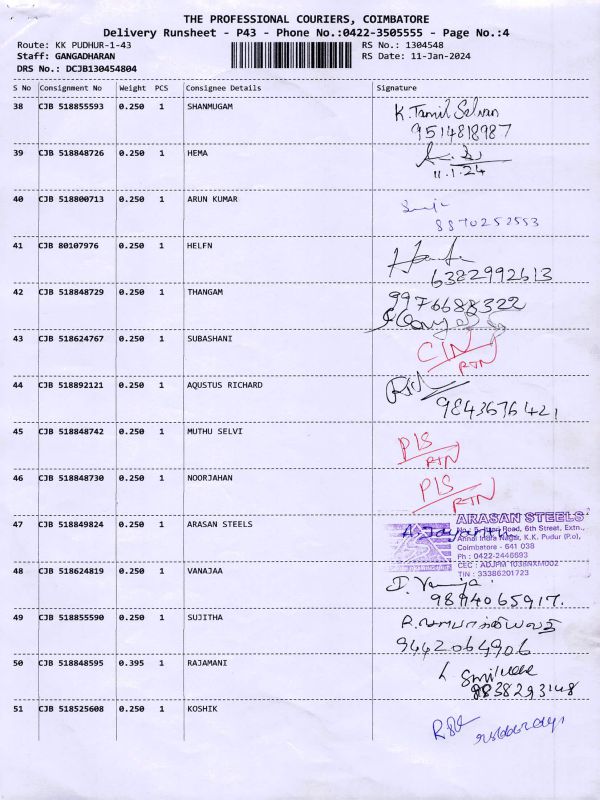 THE PROFESSIONAL COURIERS, COIMBATORE
Delivery Runsheet - P43 - Phone No.:0422-3505555 - Page No.:4
Route: KK PUDHUR-1-43 RS No.: 1304548
Staff: GANGADHARAN RS Date: 11-Jan-2024
DRS No.: DCJB130454804
S No Consignment No Weight PCS Consignee Details Signature
38 CJB 518855593 0.250 1 SHANMUGAM K. Tamil Selvan
9514818987
39 CJB 518848726 0.250 1 HEMA
11.1.24
40 CJB 518800713 0.250 1 ARUN KUMAR
8870252553
41 CJB 80107976 0.250 1 HELFN
6382992613
42 CJB 518848729 0.250 1 THANGAM 9976688322
43 CJB 518624767 0.250 1 SUBASHANI CIN
RTN
44 CJB 518892121 0.250 1 AQUSTUS RICHARD
9843676421
45 CJB 518848742 0.250 1 MUTHU SELVI PLS
RTN
46 CJB 518848730 0.250 1 NOORJAHAN PLS
RTN
47 CJB 518849824 0.250 1 ARASAN STEELS ARASAN STEELS
Road, 6th Street, Extn.,
Annai Indra Nagar, K.K. Pudur (P.o),
Coimbatore - 641 038
Ph : 0422-2446693
CEC : ADJPM 1038NXM002
TIN : 33386201723
48 CJB 518624819 0.250 1 VANAJAA
9894065917.
49 CJB 518855590 0.250 1 SUJITHA
9442064906
50 CJB 518848595 0.395 1 RAJAMANI
9838293148
51 CJB 518525608 0.250 1 KOSHIK